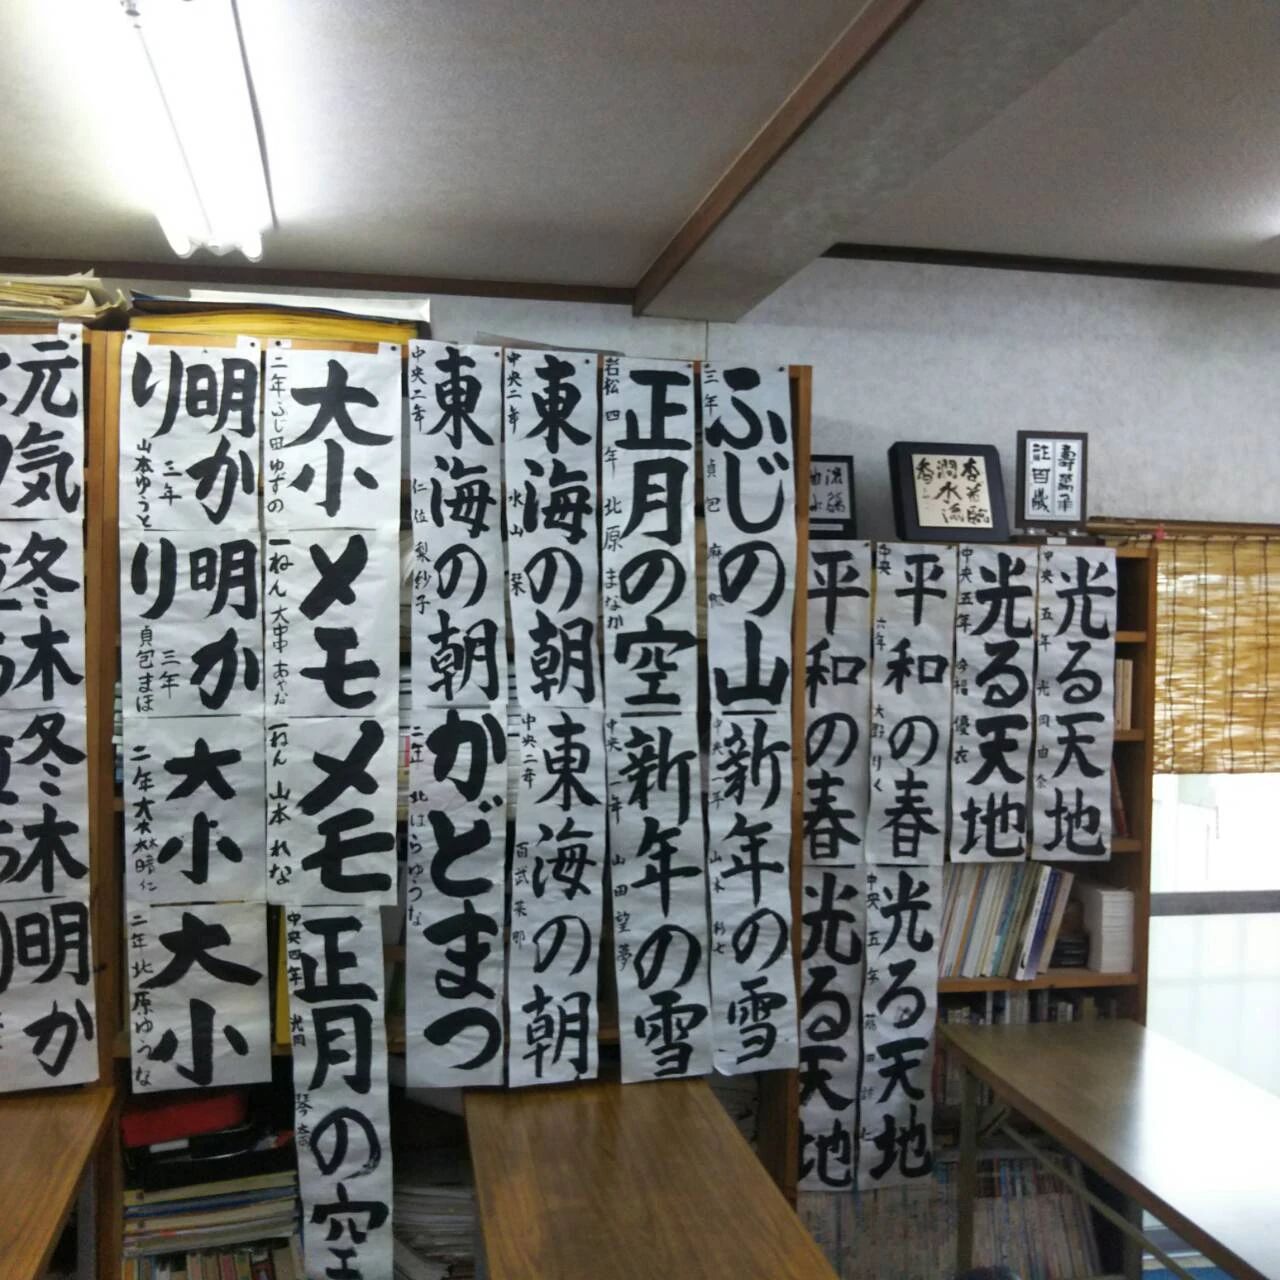 元気
冬木
冬木
明か
明かり
三年
山本ゆうと
明かり
三年
貞包まほ
大小
二年
大小
二年 北原ゆうな
大小
二年 ふじ田ゆずの
メモ
一ねん 大串 あやな
メモ
一ねん 山本 れな
正月の空
中央四年 光岡
東海の朝
中央二年 仁位 梨紗子
かどまつ
二年 北はらゆうな
東海の朝
中央二年 水山 栞
東海の朝
中央二年 百武 菜那
正月の空
若松 四年 北原 まなか
新年の雪
中央一年 山田 望夢
ふじの山
三年 貞包
新年の雪
中央一年 山本
平和の春
光る天地
平和の春
中央 六年 大野 りく
光る天地
中央 五年
光る天地
中央 五年 優衣
光る天地
中央 五年 光岡 由奈
壽萬年